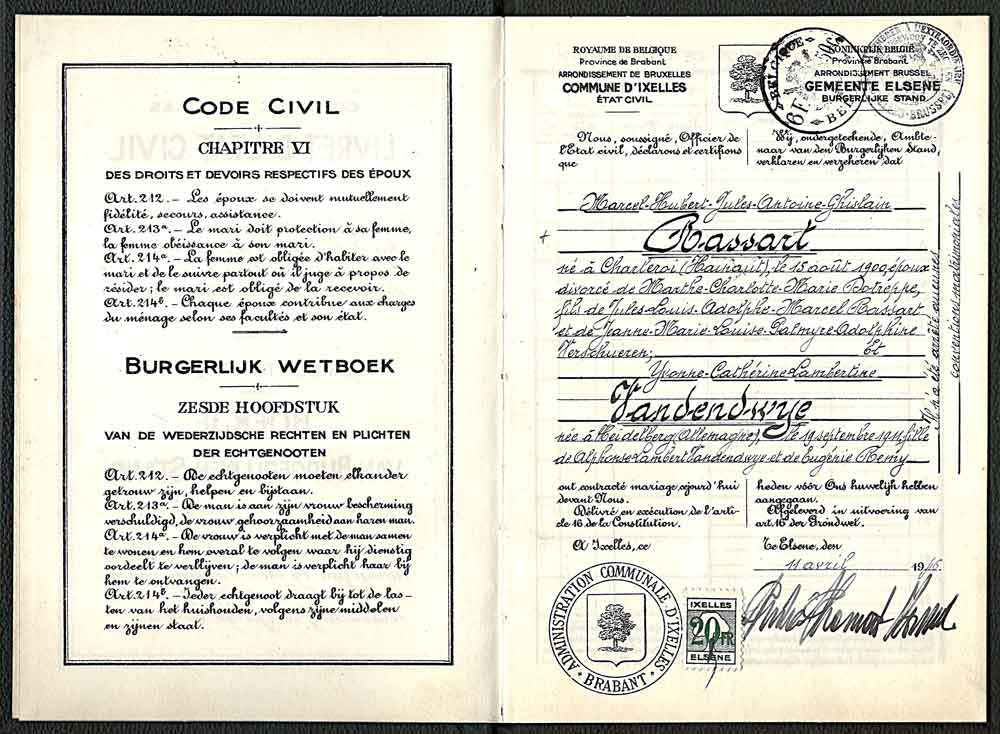 CODE CIVIL
CHAPITRE VI
DES DROITS ET DEVOIRS RESPECTIFS DES ÉPOUX
Art. 212. - Les époux se doivent mutuellement
fidélité, secours, assistance.
Art. 213ᵃ. - Le mari doit protection à sa femme,
la femme obéissance à son mari.
Art. 214ᵃ. - La femme est obligée d'habiter avec le
mari et de le suivre partout où il juge à propos de
résider; le mari est obligé de la recevoir.
Art. 214ᵇ. - Chaque époux contribue aux charges
du ménage selon ses facultés et son état.
BURGERLIJK WETBOEK
ZESDE HOOFDSTUK
VAN DE WEDERZIJDSCHE RECHTEN EN PLICHTEN
DER ECHTGENOOTEN
Art. 212. - De echtgenooten moeten elkander
getrouw zijn, helpen en bijstaan.
Art. 213ᵃ. - De man is aan zijn vrouw bescherming
verschuldigd, de vrouw gehoorzaamheid aan haren man.
Art. 214ᵃ. - De vrouw is verplicht met de man samen
te wonen en hem overal te volgen waar hij dienstig
oordeelt te verblijven; de man is verplicht haar bij
hem te ontvangen.
Art. 214ᵇ. - Ieder echtgenoot draagt bij tot de las-
ten van het huishouden, volgens zijne middelen
en zijnen staat.
ROYAUME DE BELGIQUE
Province de Brabant
ARRONDISSEMENT DE BRUXELLES
COMMUNE D'IXELLES
ÉTAT CIVIL
KONINKRIJK BELGIË
Provincie Brabant
ARRONDISSEMENT BRUSSEL
GEMEENTE ELSENE
BURGERLIJKE STAND
BELGIQUE
Nous, soussigné, Officier de
l'Etat civil, déclarons et certifions
que
Wij, ondergeteekende, Ambte-
naar van den Burgerlijken Stand,
verklaren en verzekeren dat
Marcel-Hubert-Jules-Antoine-Ghislain
Rassart
né à Charleroi (Hainaut), le 15 août 1900, époux
divorcé de Marthe-Charlotte-Marie
fils de Jules-Louis-Adolphe-Marcel Rassart
et de Jeanne-Marie-Louise-Palmyre-Adolphine
Verschueren; Et
Yvonne-Cathérine-Lambertine
Vandendwye
née à Heidelberg (Allemagne), le 19 septembre 1911, fille
de Alphonse-Lambert Vandendwye et de Eugénie Remy
Il n'a été arrêté aucunes
conventions matrimoniales
ont contracté mariage cejourd'hui
devant Nous.
Délivré en exécution de l'arti-
cle 16 de la Constitution.
heden vóór Ons huwelijk hebben
aangegaan.
Afgeleverd in uitvoering van
art. 16 der Grondwet.
A Ixelles, ce
Te Elsene, den
11 avril 1946.
ADMINISTRATION COMMUNALE D'IXELLES
BRABANT
IXELLES
20 FR
ELSENE